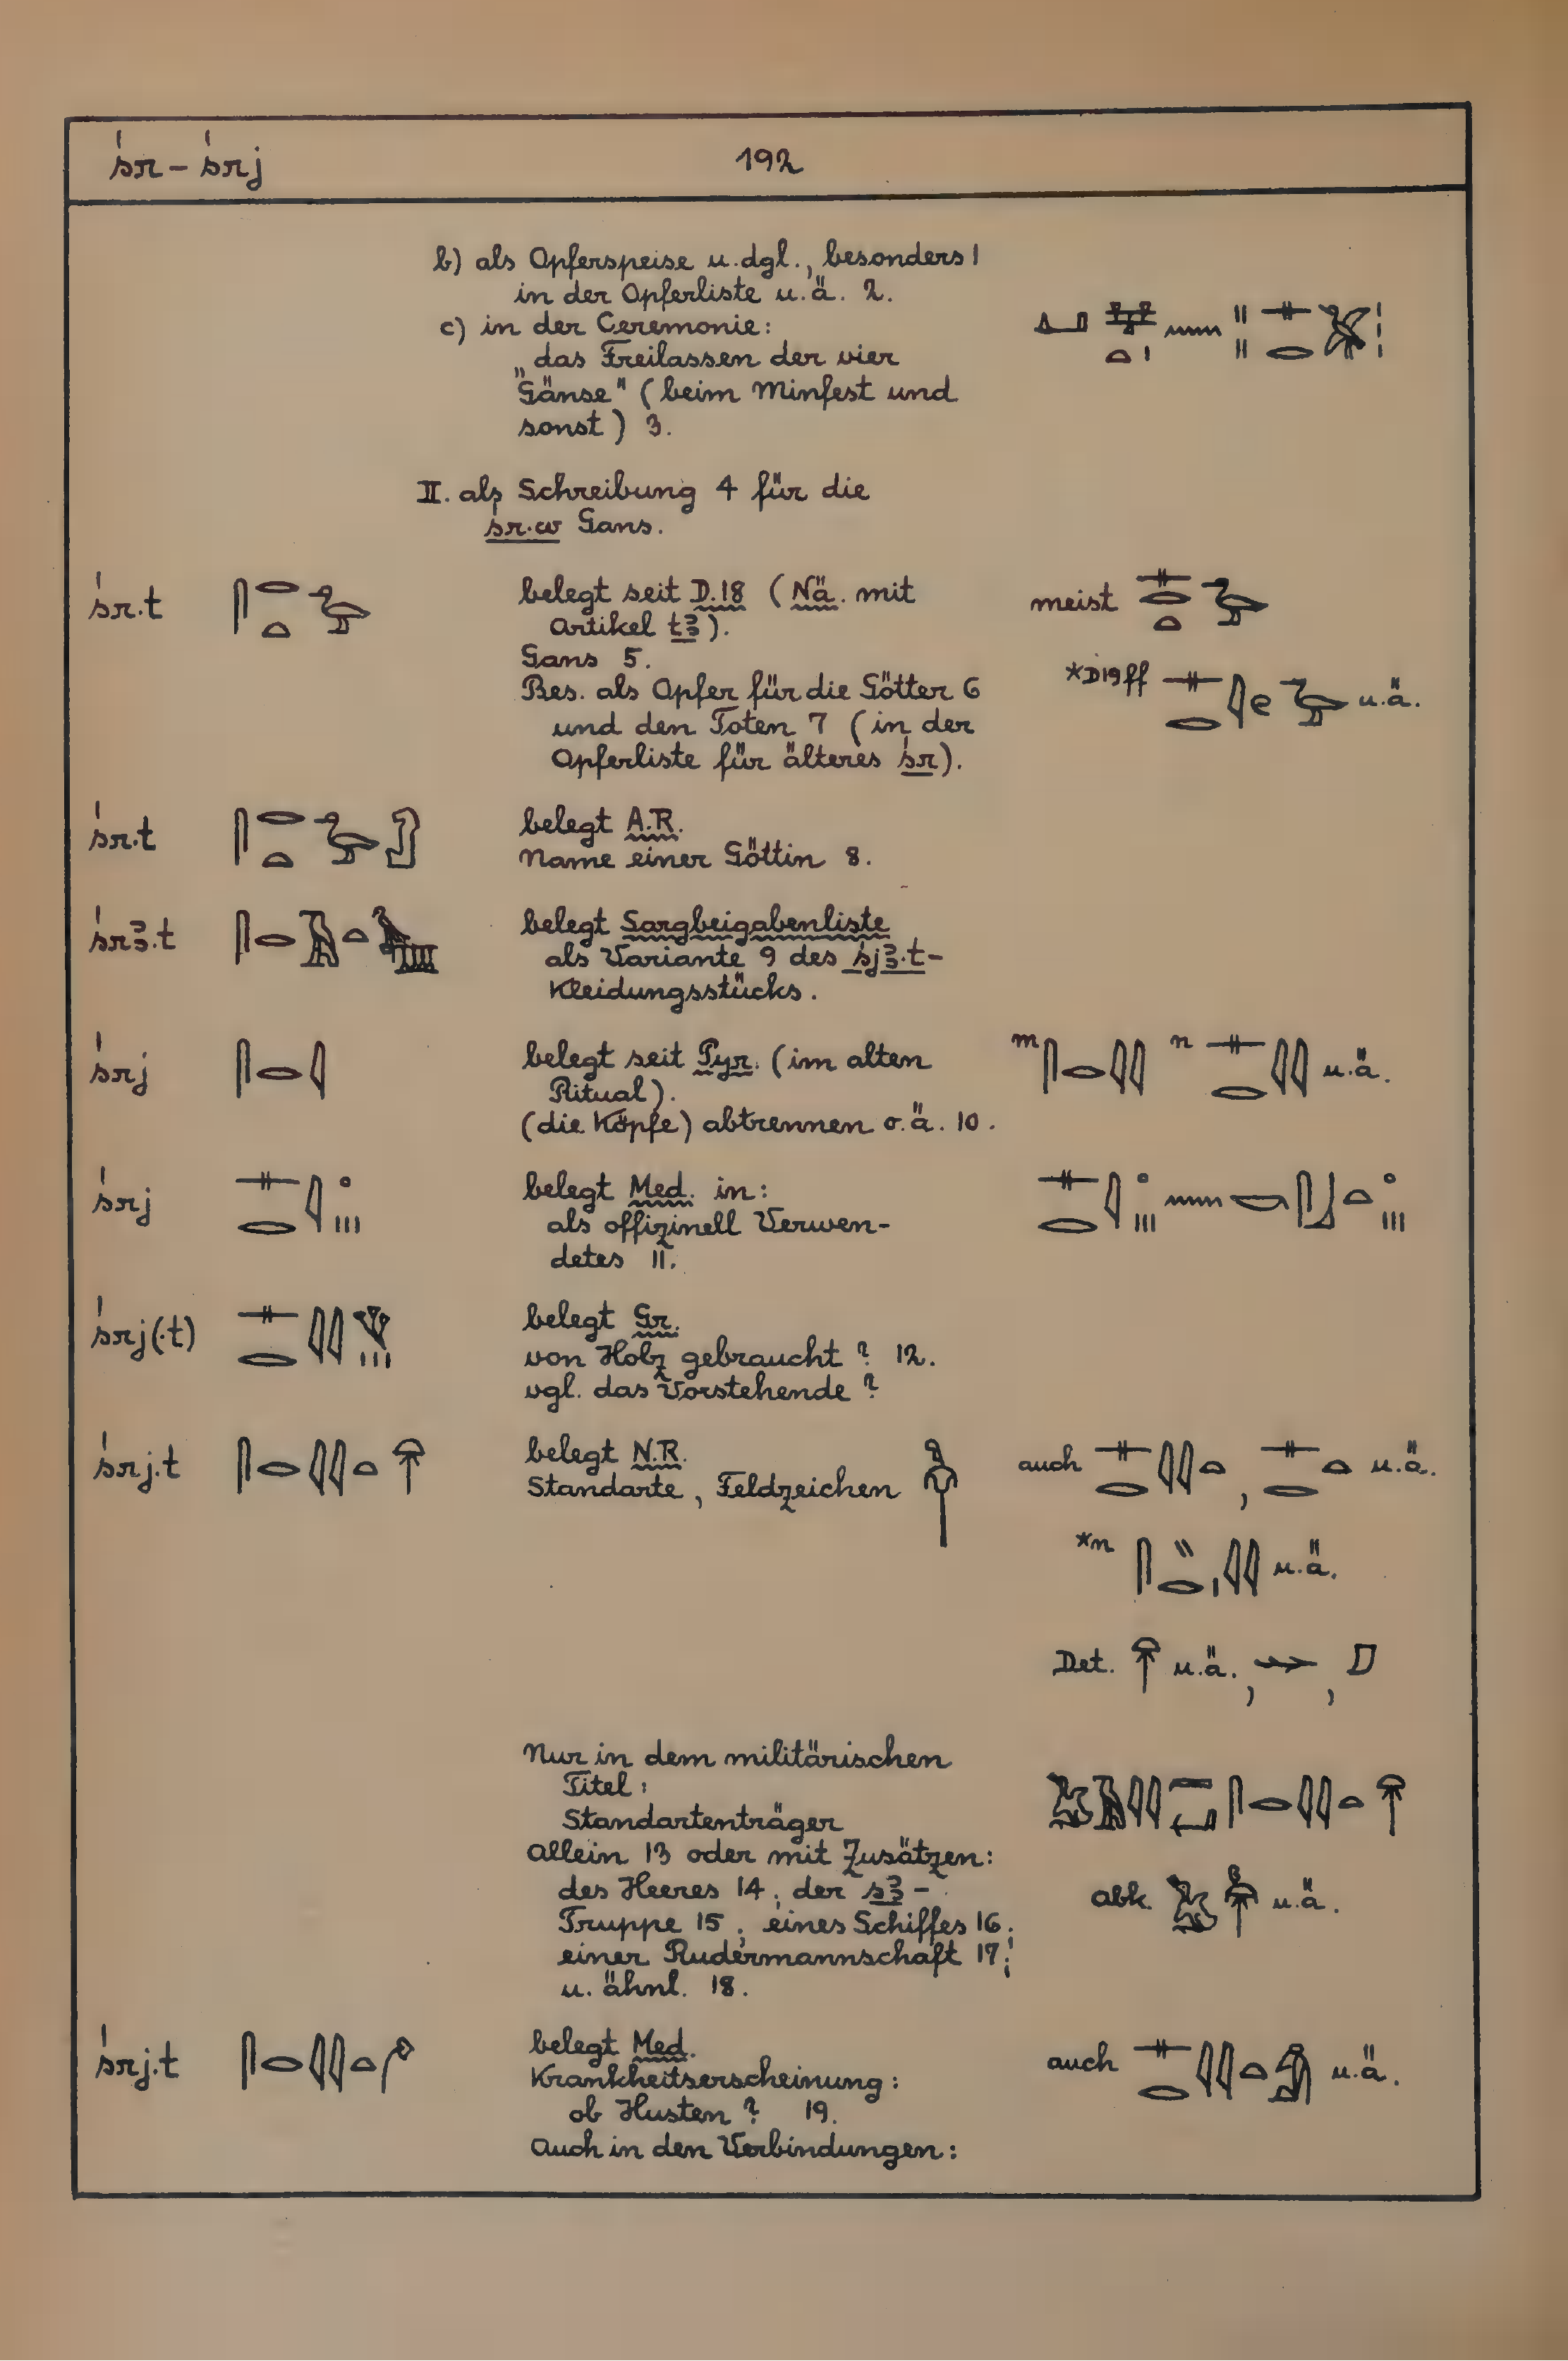 śr – śrj 192
b) als Opferspeise u. dgl., besonders 1
in der Opferliste u. ä. 2.
c) in der Ceremonie:
„das Freilassen der vier
Gänse" (beim Minfest und
sonst) 3.
II. als Schreibung 4 für die
śr·w Gans.
śr·t
belegt seit D.18 (Nä. mit
Artikel tꜣ).
Gans 5.
Bes. als Opfer für die Götter 6
und den Toten 7 (in der
Opferliste für älteres śr).
meist
*D19ff u.ä.
śr·t
belegt A.R.
Name einer Göttin 8.
śrꜣ·t
belegt Sargbeigabenliste
als Variante 9 des śjꜣ·t-
Kleidungsstücks.
śrj
belegt seit Pyr. (im alten
Ritual).
(die Köpfe) abtrennen o.ä. 10.
m n u.ä.
śrj
belegt Med. in:
als offizinell Verwen-
detes 11.
śrj(·t)
belegt Gr.
von Holz gebraucht? 12.
vgl. das Vorstehende?
śrj·t
belegt N.R.
Standarte, Feldzeichen
auch , u.ä.
*n u.ä.
Det. u.ä., ,
Nur in dem militärischen
Titel:
Standartenträger
Allein 13 oder mit Zusätzen:
des Heeres 14; der sꜣ-
Truppe 15; eines Schiffes 16;
einer Rudermannschaft 17;
u. ähnl. 18.
abk. u.ä.
śrj·t
belegt Med.
Krankheitserscheinung:
ob Husten? 19.
Auch in den Verbindungen:
auch u.ä.